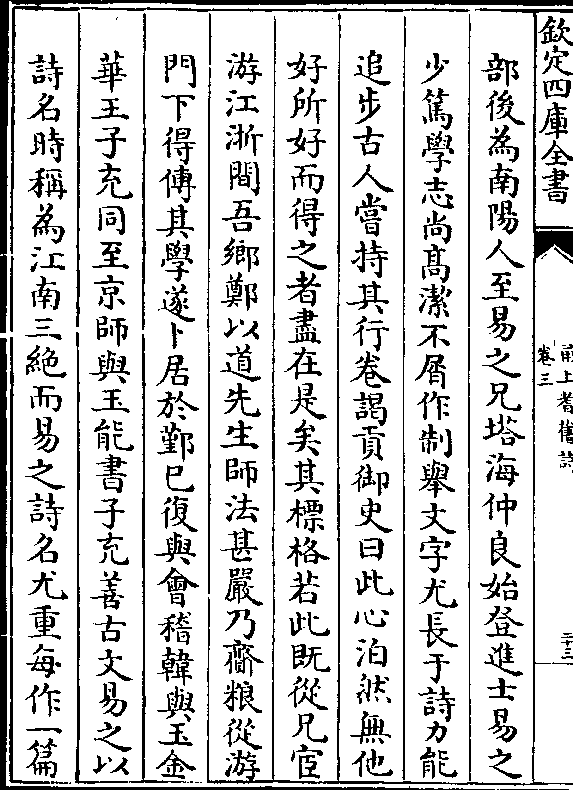 欽定四庫全書
甬上耆舊詩
卷三
二十三
部後為南陽人至易之兄塔海仲良始登進士易之
少篤學志尚髙潔不屑作制舉文字尤長于詩力能
追步古人嘗持其行卷謁貢御史曰此心泊然無他
好所好而得之者盡在是矣其標格若此既從兄宦
游江浙間吾鄉鄭以道先生師法甚嚴乃齎粮從游
門下得傳其學遂卜居於鄞已復與會稽韓與玉金
華王子充同至京師與玉能書子充善古文易之以
詩名時稱為江南三絶而易之詩名尤重每作一篇